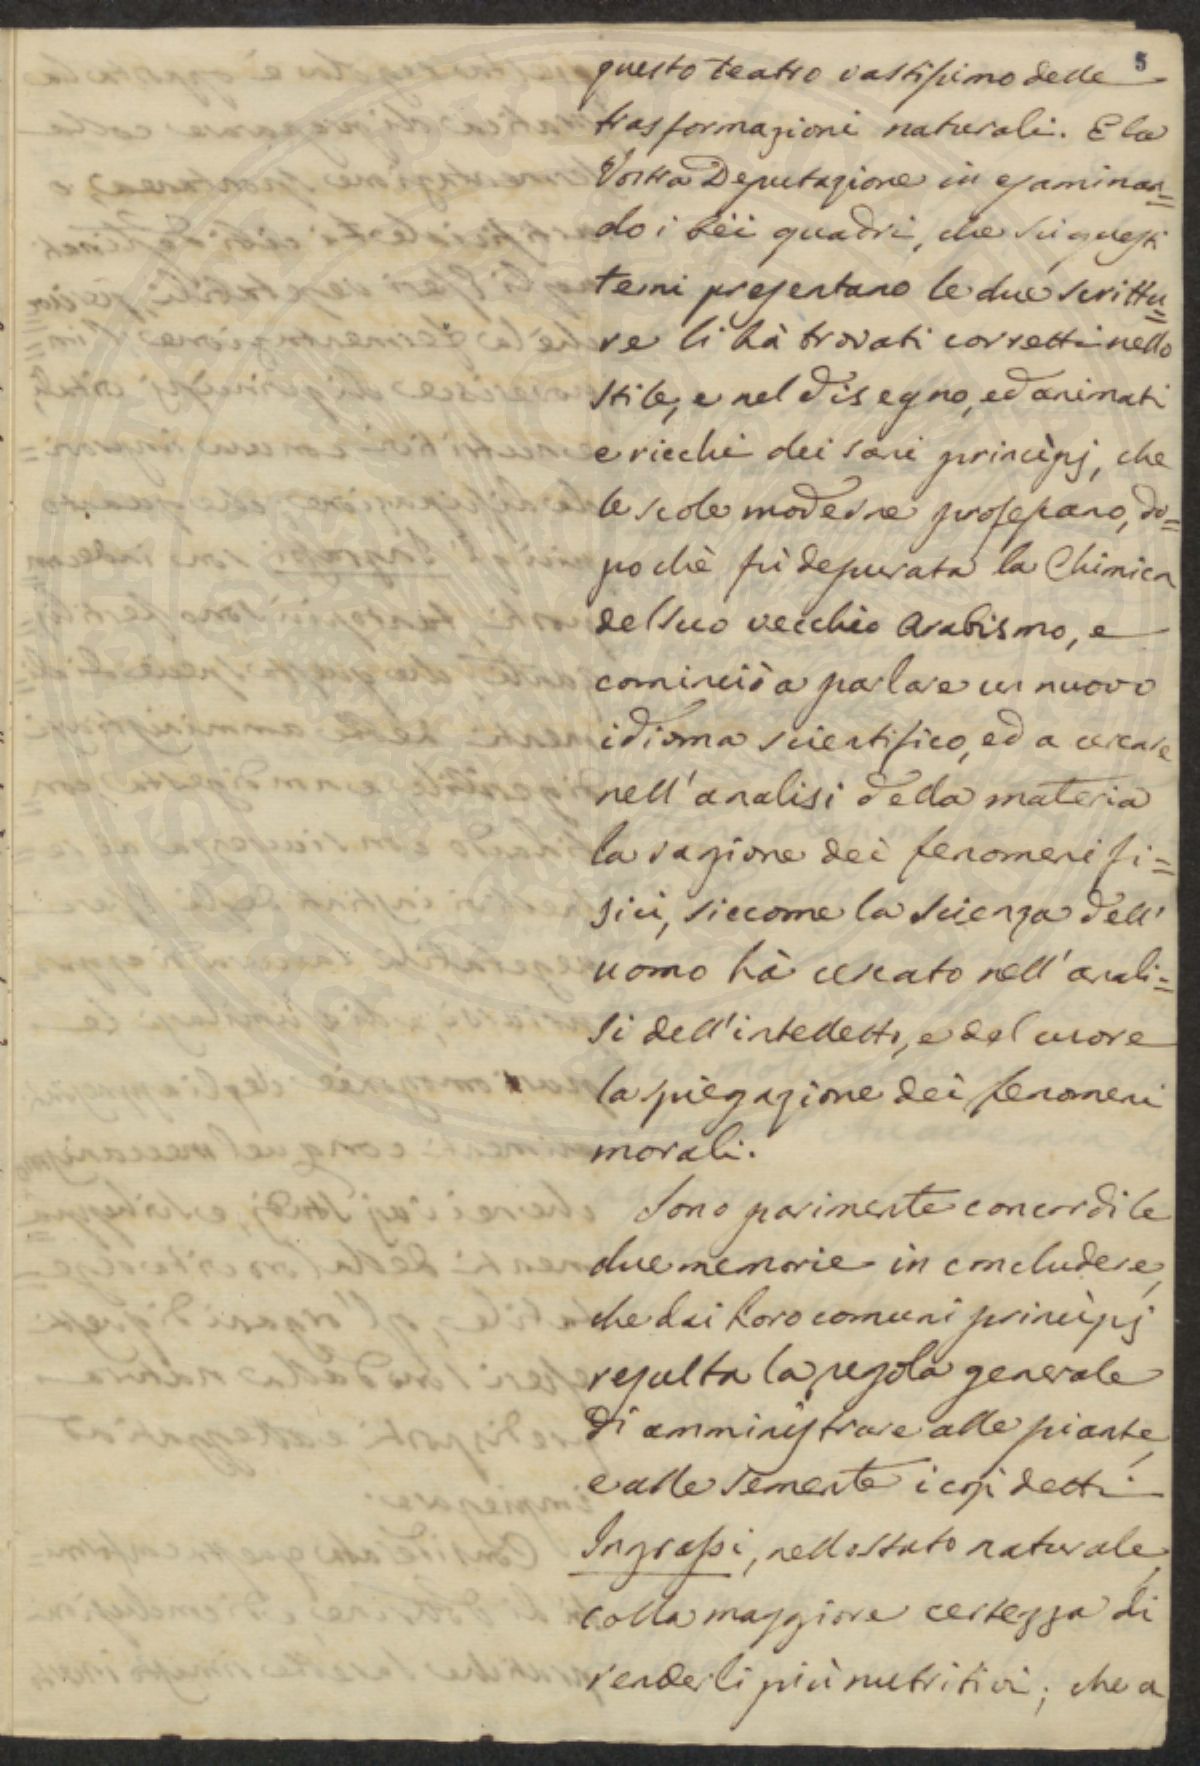 5
questo teatro vastissimo delle
trasformazioni naturali. E la
Vostra Deputazione in esaminan=
do i bei quadri, che su questi
temi presentano le due scrittu=
re li hà trovati corretti nello
stile, e nel disegno, ed animati
e ricchi dei sani principj, che
le scole moderne professano, do=
po chè fù depurata la Chimica
del suo vecchio Arabismo, e
cominciò a parlare un nuovo
idioma scientifico, ed a cercare
nell'analisi della materia
la ragione dei fenomeni fi=
sici, siccome la scienza dell'
uomo hà cercato nell'anali=
si dell'intelletto, e del cuore
la spiegazione dei fenomeni
morali.
Sono parimente concordi le
due memorie in concludere,
che dai loro comuni principj
resulta la regola generale
di amministrare alle piante,
e alle semente i così detti
Ingrassi, nello stato naturale,
colla maggiore certezza di
renderli più nutritivi; che a